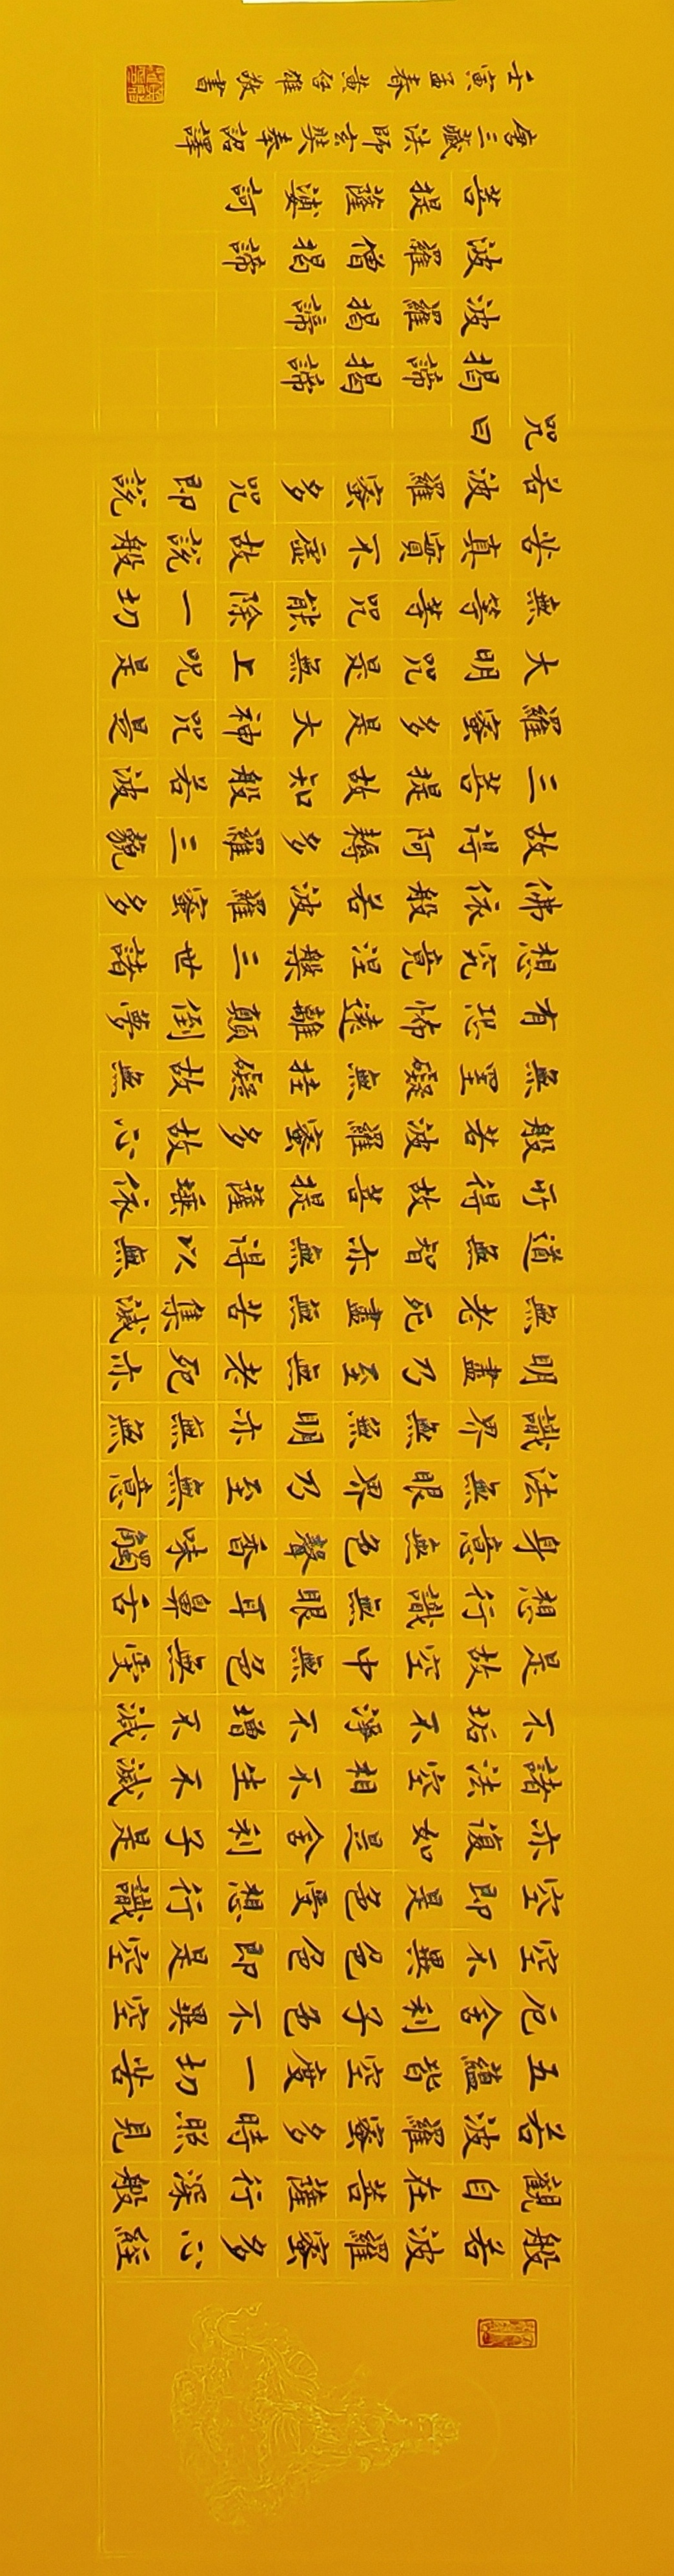 般若波羅蜜多心經
觀自在菩薩行深般
若波羅蜜多時照見
五蘊皆空度一切苦
厄舍利子色不異空
空不異色色即是空
空即是色受想行識
亦復如是舍利子是
諸法空相不生不滅
不垢不淨不增不減
是故空中無色無受
想行識無眼耳鼻舌
身意無色聲香味觸
法無眼界乃至無意
識界無無明亦無無
明盡乃至無老死亦
無老死盡無苦集滅
道無智亦無得以無
所得故菩提薩埵依
般若波羅蜜多故心
無罣礙無挂礙故無
有恐怖遠離顛倒夢
想究竟涅槃三世諸
佛依般若波羅蜜多
故得阿耨多羅三藐
三菩提故知般若波
羅蜜多是大神咒是
大明咒是無上呪是
無等等咒能除一切
苦真實不虛故說般
若波羅蜜多咒即說
咒曰
揭諦揭諦
波羅揭諦
波羅僧揭諦
菩提薩婆訶
唐三藏法師玄奘奉詔譯
壬寅孟春黃雄敬書